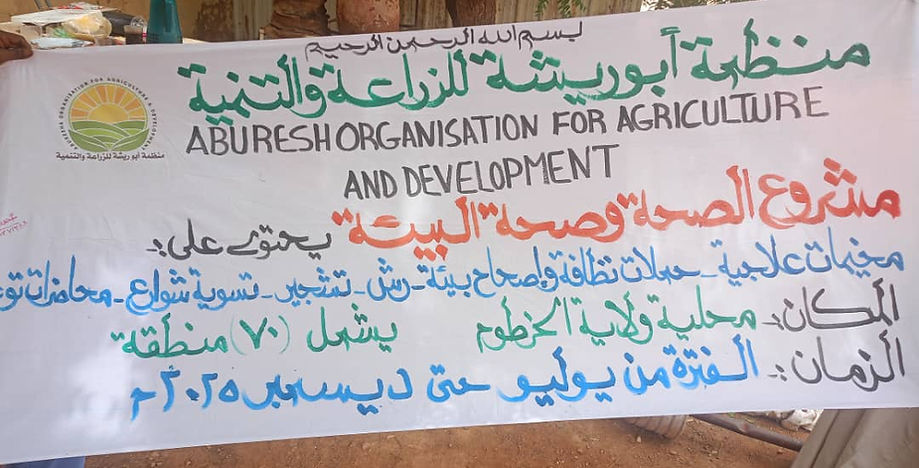 بسم الله الرحمن الرحيم
منظمة أبوريشة للزراعة والتنمية
ABURESH ORGANISATION FOR AGRICULTURE
AND DEVELOPMENT
ABUREESHA ORGANISATION FOR AGRICULTURE & DEVELOPMENT
منظمة أبو ريشة للزراعة والتنمية
مشروع الصحة وصحة البيئة يحتوى على:
مخيمات علاجية - حملات نظافة وإصحاح بيئة - رش - تشجير - تسوية شوارع - محاضرات
المكان:- محلية ولاية الخرطوم يشمل (٧٠) منطقة
الزمان:- الفترة من يوليو حتى ديسمبر ٢٠٢٥م